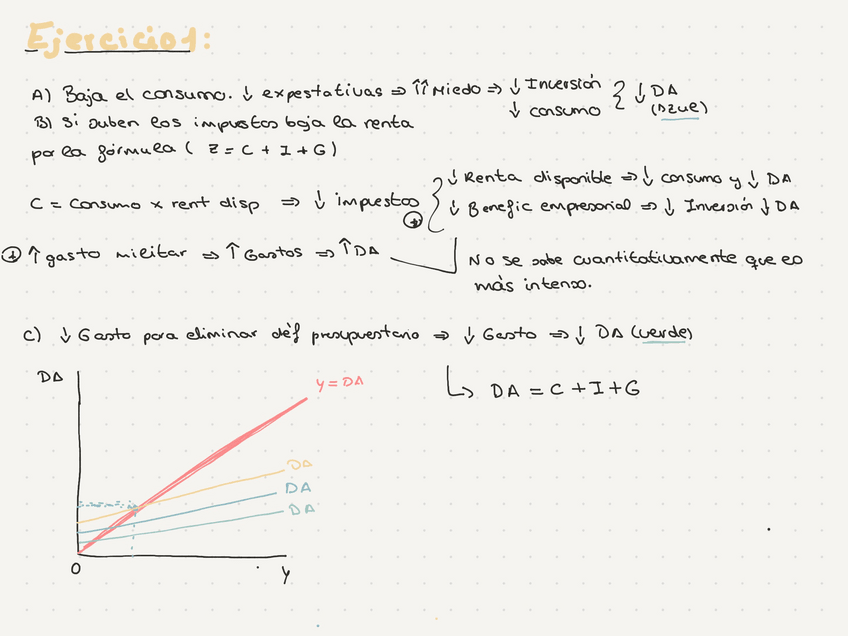 Ejercicio 1:
A) Baja el consumo. ↓ expestativas ⇒ ↑↑ Miedo ⇒ ↓ Inversión } ↓ DA
↓ consumo (Azul)
B) Si suben los impuestos baja la renta
por la fórmula ( Z = C + I + G )
C = Consumo x rent disp ⇒ ↓ impuestos { ↓ Renta disponible ⇒ ↓ consumo y ↓ DA
↓ Benefic empresarial ⇒ ↓ Inversión ↓ DA
↑ gasto militar ⇒ ↑ Gastos ⇒ ↑ DA
No se sabe cuantitativamente que es
más intenso.
C) ↓ Gasto para eliminar déf presupuestario ⇒ ↓ Gasto ⇒ ↓ DA (verde)
↳ DA = C + I + G
DA
Y = DA
DA
DA
DA
O
Y